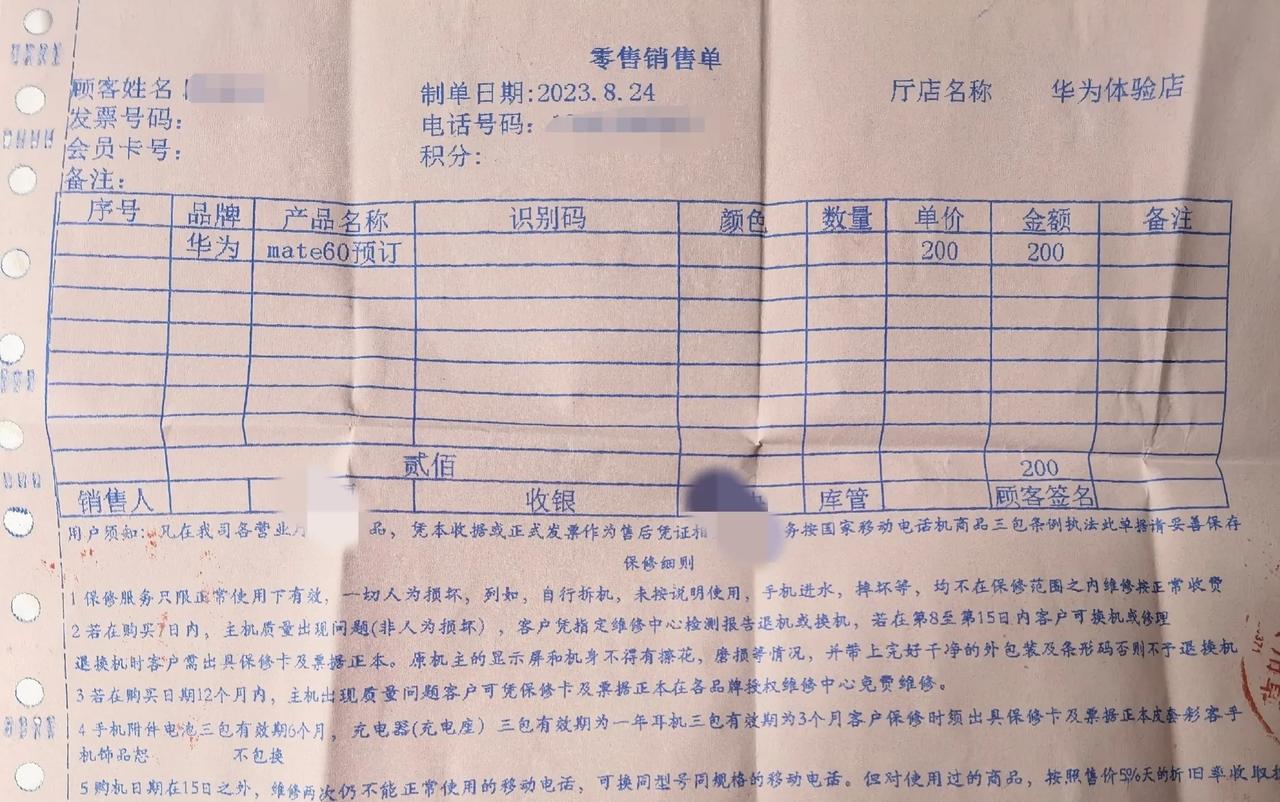 零售销售单
顾客姓名 制单日期:2023.8.24 厅店名称 华为体验店
发票号码: 电话号码:
会员卡号: 积分:
备注:
序号 品牌 产品名称 识别码 颜色 数量 单价 金额 备注
华为 mate60预订 200 200
贰佰 200
销售人 收银 库管 顾客签名
用户须知:凡在我司各营业 品,凭本收据或正式发票作为售后凭证相 务按国家移动电话机商品三包条例执法此单据请妥善保存
保修细则
1 保修服务只限正常使用下有效,一切人为损坏,列如,自行拆机,未按说明使用,手机进水,摔坏等,均不在保修范围之内维修按正常收费
2 若在购买7日内,主机质量出现问题(非人为损坏),客户凭指定维修中心检测报告退机或换机,若在第8至第15日内客户可换机或修理
退换机时客户需出具保修卡及票据正本。原机主的显示屏和机身不得有擦花,磨损等情况,并带上完好干净的外包装及条形码否则不予退换机
3 若在购买日期12个月内,主机出现质量问题客户可凭保修卡及票据正本在各品牌授权维修中心免费维修。
4 手机附件电池三包有效期6个月,充电器(充电座)三包有效期为一年耳机三包有效期为3个月客户保修时须出具保修卡及票据正本皮套彩客手
机饰品恕 不包换
5 购机日期在15日之外,维修两次仍不能正常使用的移动电话,可换同型号同规格的移动电话。但对使用过的商品,按照售价5%天的折旧率收取